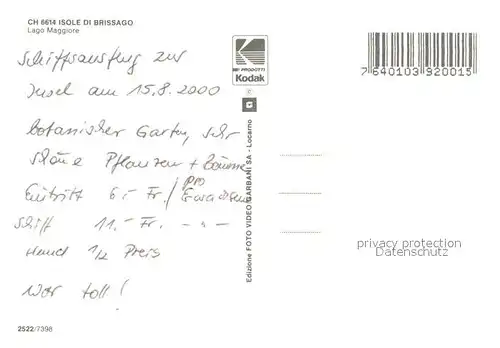 CH 6614 ISOLE DI BRISSAGO
Lago Maggiore
Schiffsausflug zur
Insel am 15.8.2000
botanischer Garten, sehr
schöne Pflanzen + Bäume
Eintritt 6.- Fr. / pro Erwachsen
Schiff 11.- Fr. - " -
Hund 1/2 Preis
War toll!
2522/7398
BEI PRODOTTI
Kodak
Edizione FOTO VIDEO GARBANI SA - Locarno
7 640103 920015
privacy protection
Datenschutz